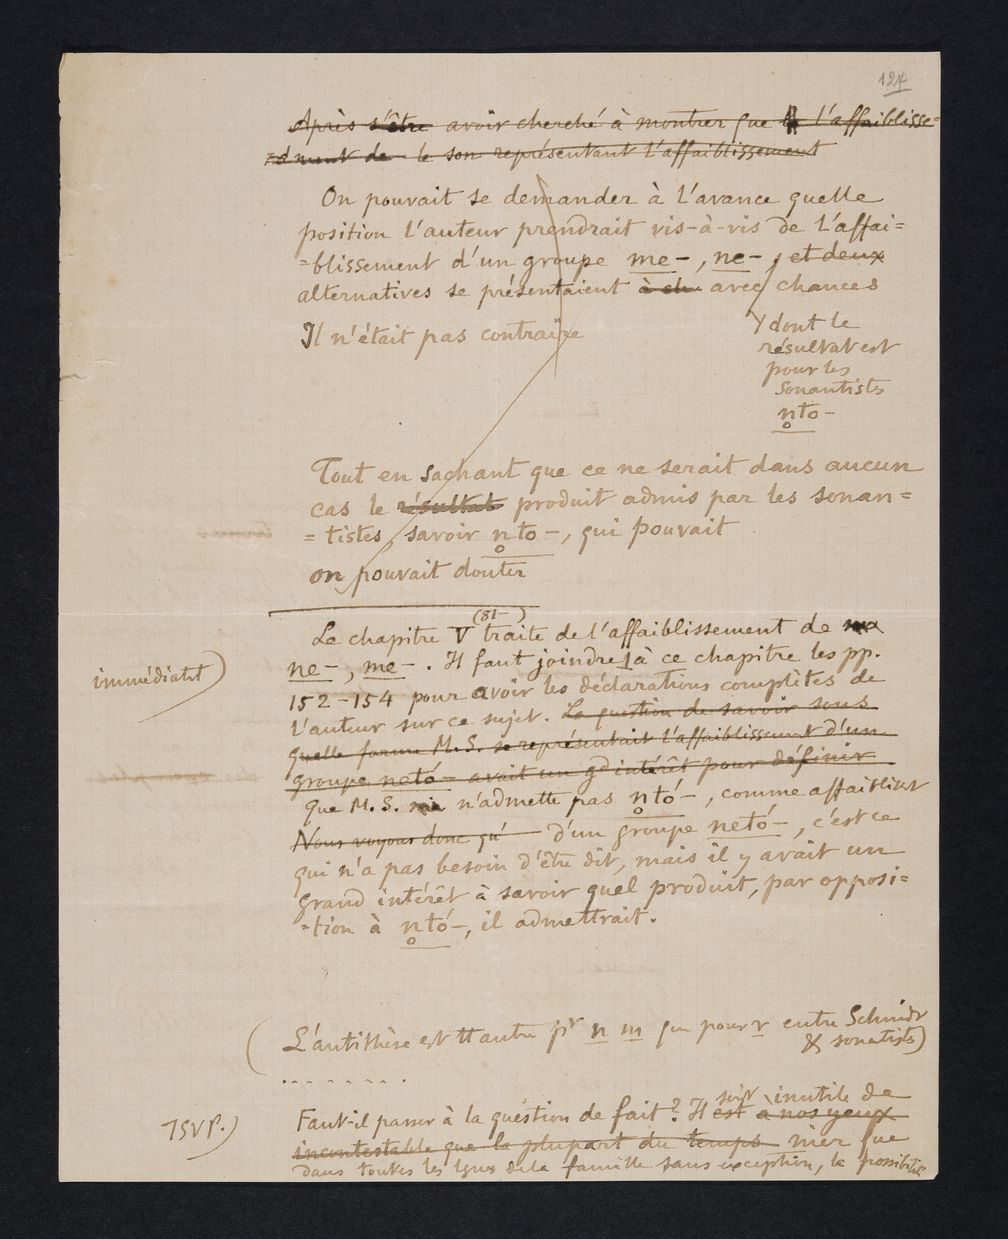 127
Après s'être avoir cherché à montrer que l'affaiblisse=
=ment de le son représentant l'affaiblissement
On pouvait se demander à l'avance quelle
position l'auteur prendrait vis-à-vis de l'affai=
=blissement d'un groupe me-, ne-, et deux
alternatives se présentaient avec chances
Il n'était pas contraire
dont le
résultat est
pour les
sonantistes
n̥to-
Tout en sachant que ce ne serait dans aucun
cas le résultat produit admis par les sonan=
=tistes, savoir n̥to-, qui pouvait
on pouvait douter
(81-)
Le chapitre V traite de l'affaiblissement de
ne-, me-. Il faut joindre à ce chapitre les pp.
immédiatt)
152-154 pour avoir les déclarations complètes de
l'auteur sur ce sujet. La question de savoir sous
quelle forme M.S. se représentait l'affaiblissement d'un
groupe netó- avait un gd intérêt pour définir
que M.S. n'admette pas n̥tó-, comme affaiblist
Nous voyons donc qu' d'un groupe netó-, c'est ce
qui n'a pas besoin d'être dit, mais il y avait un
grand intérêt à savoir quel produit, par opposi=
=tion à n̥tó-, il admettrait.
(L'antithèse est tt autre pr n m que pour r entre Schmidt
& sonatists)
........
Faut-il passer à la question de fait? Il est serait inutile de
à nos yeux
TSVP.)
incontestable que la plupart du temps nier que
dans toutes les lgues de la famille sans exception, la possibilité